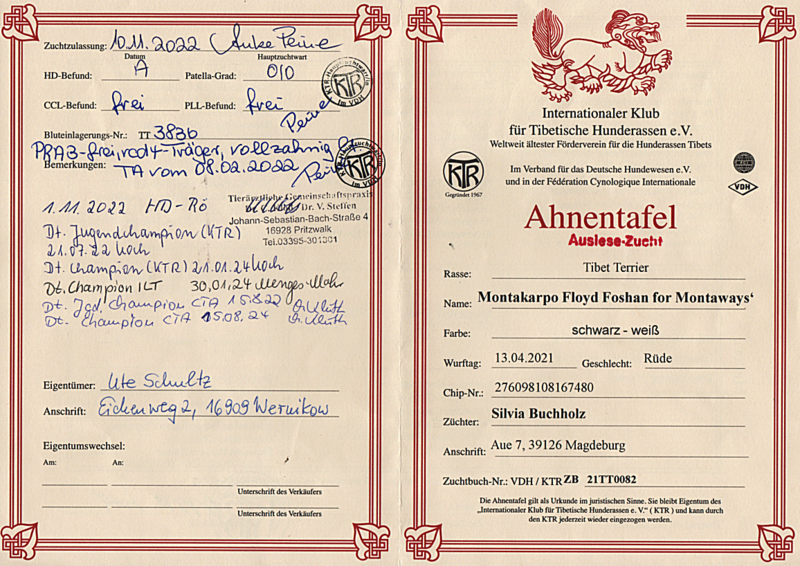 Zuchtzulassung: 10.11.2022 Anke Peine
Datum Hauptzuchtwart
HD-Befund: A Patella-Grad: 0/0
CCL-Befund: frei PLL-Befund: frei
Peine
KTR
im VDH
Bluteinlagerungs-Nr.: TT 3836
PRA3-frei, rcd4-Träger, vollzahnig
Bemerkungen: TA vom 08.02.2022 Peine
KTR
im VDH
1.11.2022 HD-Rö
Tierärztliche Gemeinschaftspraxis
Dr. V. Steffen
Johann-Sebastian-Bach-Straße 4
16928 Pritzwalk
Tel.03395-301301
Dt. Jugendchampion (KTR)
21.07.22 Koch
Dt. Champion (KTR) 21.01.24 Koch
Dt. Champion ILT 30.01.24 Menges-Mohr
Dt. Jgd. Champion CTA 15.8.22
Dt. Champion CTA 15.08.24
Eigentümer: Ute Schultz
Anschrift: Eichenweg 2, 16909 Wernikow
Eigentumswechsel:
Am: An:
Unterschrift des Verkäufers
Unterschrift des Verkäufers
Internationaler Klub
für Tibetische Hunderassen e.V.
Weltweit ältester Förderverein für die Hunderassen Tibets
KTR
Gegründet 1967
Im Verband für das Deutsche Hundewesen e.V.
und in der Fédération Cynologique Internationale
VDH
Ahnentafel
Auslese-Zucht
Rasse: Tibet Terrier
Name: Montakarpo Floyd Foshan for Montaways‘
Farbe: schwarz - weiß
Wurftag: 13.04.2021 Geschlecht: Rüde
Chip-Nr.: 276098108167480
Züchter: Silvia Buchholz
Anschrift: Aue 7, 39126 Magdeburg
Zuchtbuch-Nr.: VDH / KTR ZB 21TT0082
Die Ahnentafel gilt als Urkunde im juristischen Sinne. Sie bleibt Eigentum des
„Internationaler Klub für Tibetische Hunderassen e. V.“ ( KTR ) und kann durch
den KTR jederzeit wieder eingezogen werden.